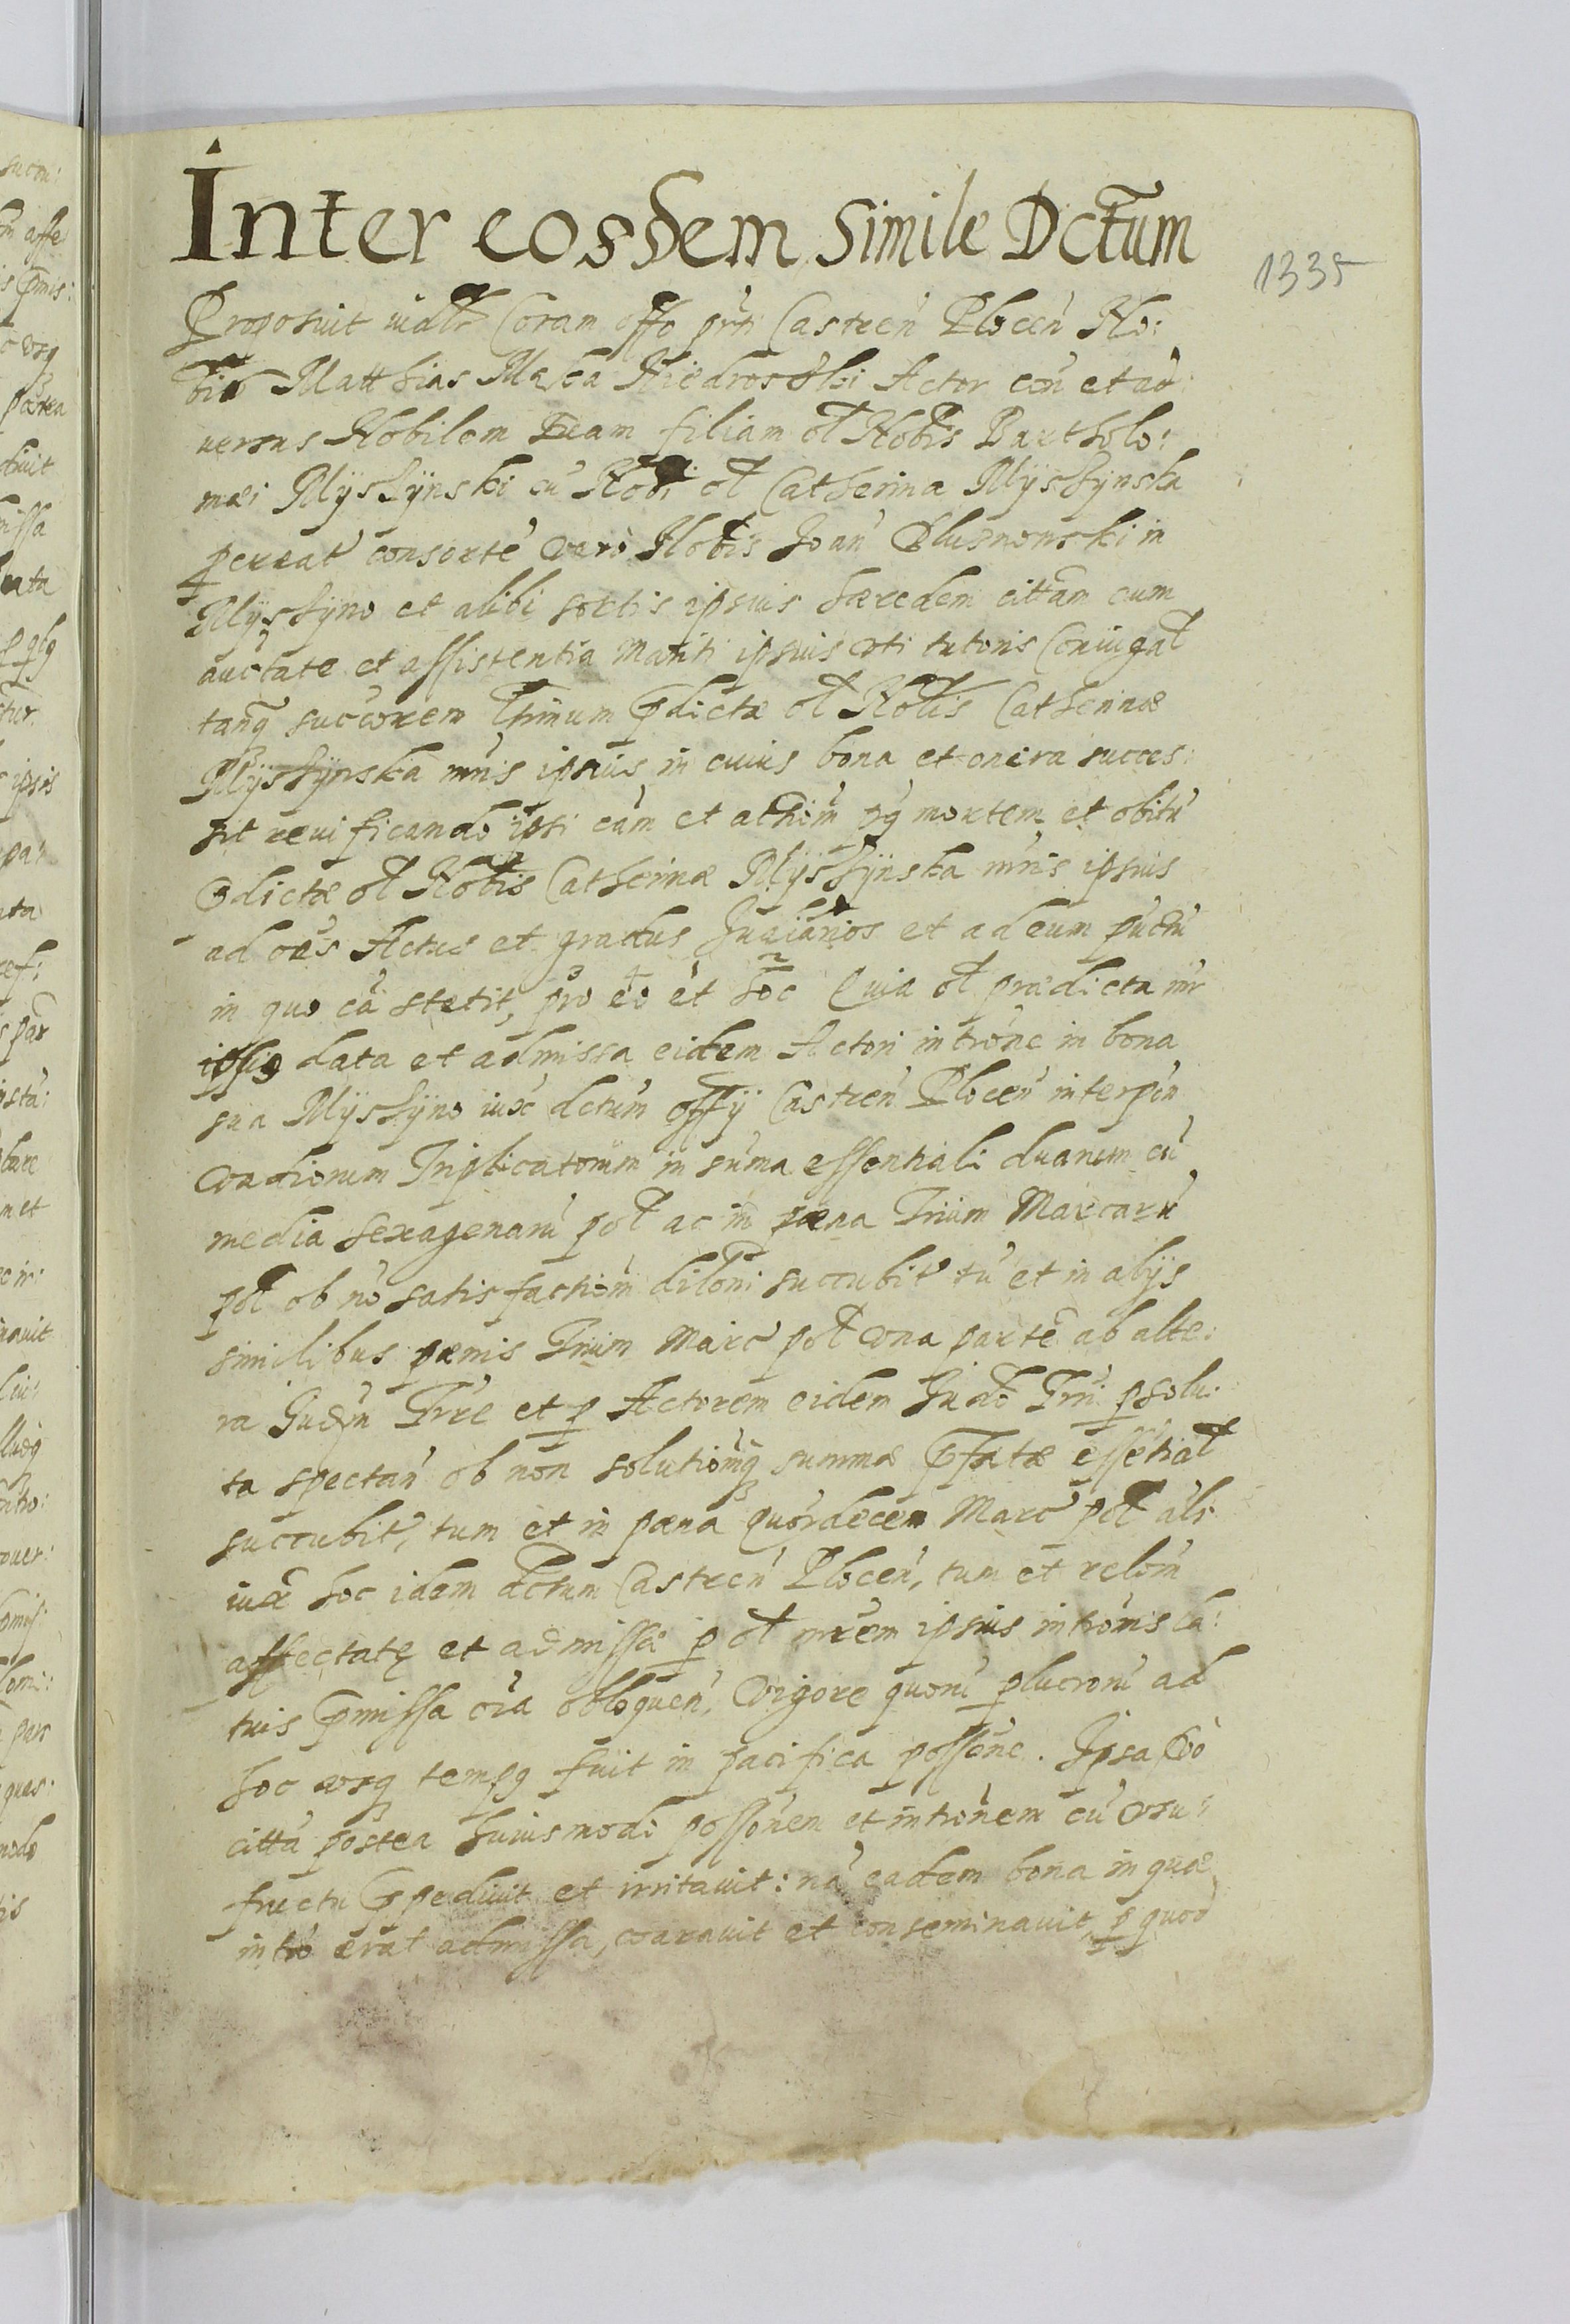 Inter eosdem Simile Dctum
1335
Proposuit iudlr Coram offo pnti Castren Plocen No:
blis Matthias Maska Niedrosski Actor con et ad
uersus Nobilem Euam filiam ol Noblis Bartholo:
mæi Myslynski cu Nobi ol Catherina Myslynska
pcreat consorte vero Noblis Joan Plusnowski in
Myslyno et alibi sortis ipsius hæredem cittam cum
auctate et assistentia Mariti ipsius vti tutoris Coniugal
tanq succorem ltimum pdictæ ol Noblis Catherinæ
Myslynska mris ipsius in cuius bona et onera succes:
sit reuificando ipsi cam et athom pq mortem et obitu
pdictæ ol Noblis Catherinæ Myslynska mris ipsius
ad oes Actus et gradus Judiarios et ad eum puctu
in quo ca stetit, pro eo et hoc Quia ol prædicta mr
ipsiq data et admissa eidem Actori introne in bona
sua Myslyno iux dctum offy Castren Plocen interpon
vadiorum Triplicatorum in suma essentiali duarum cu
media sexagenaru pol ac in pæna Trium Marcaru
pol ob no satisfactiom diloni succubit tu et in alys
similibus pænis Trium Marc pol vna parte ab alte:
ra Judm Trre et p Actorem eidem Judo Trri psolu:
ta spectan ob non solutiomq summæ pfatæ essetial
succubit, tum et in pæna quordecem Marc pol als
iux hoc idem dctum Castren Plocen, tum et relom
affectatę et admissæ p ol mrem ipsius intromis ca:
tuis pmissa oia obloquen, Vigore quoru plucroru ad
hoc vsq tempq fuit in pacifica possone. Ipsa vo
citta postea huiusmodi possonem et intronem cu vsu:
fructu ppediuit et irritauit: na eadem bona in quæ
intro erat admissa, exarauit et conseminauit, p quod